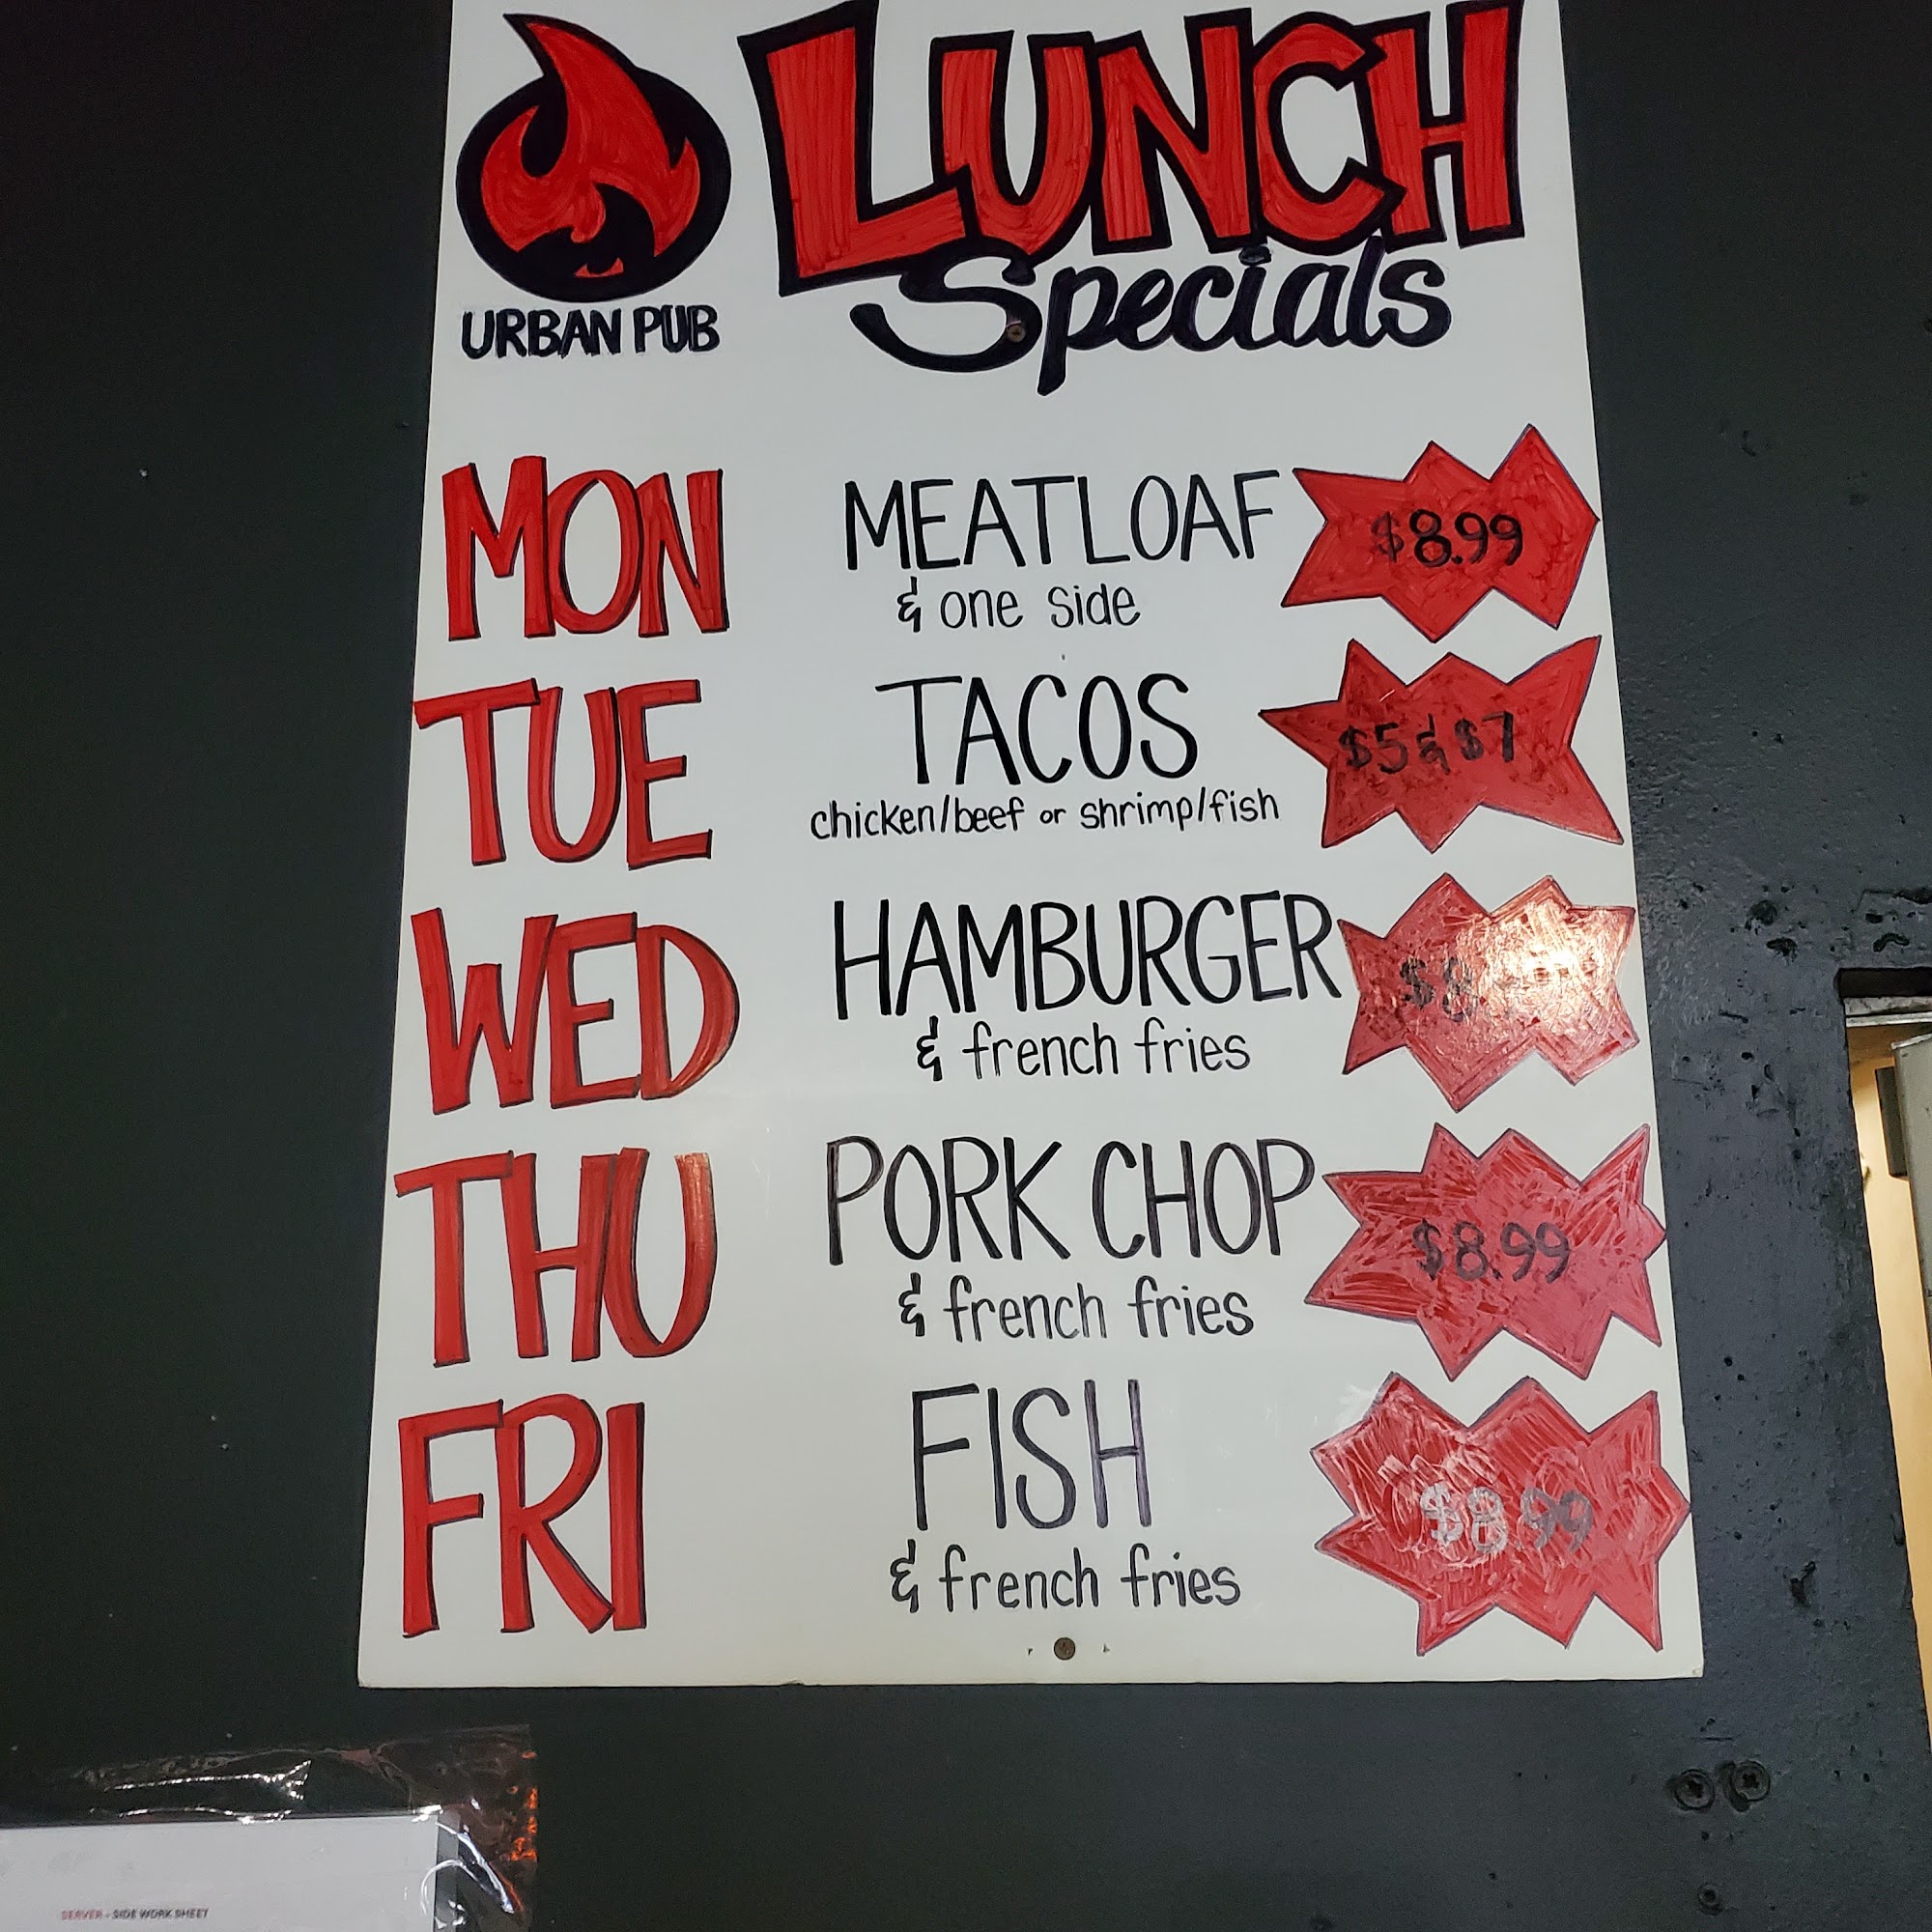 LUNCH
Specials
URBAN PUB
MON MEATLOAF $8.99
& one side
TUE TACOS $5 & $7
chicken/beef or shrimp/fish
WED HAMBURGER
& french fries
THU PORK CHOP $8.99
& french fries
FRI FISH $8.99
& french fries
SERVER - SIDE WORK SHEET